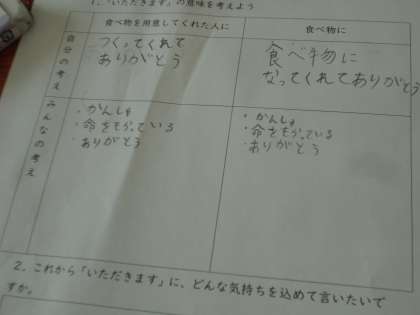 1.「いただきます」の意味を考えよう
食べ物を用意してくれた人に
食べ物に
自分の考え
つくってくれて
ありがとう
食べ物に
なってくれてありがとう
みんなの考え
・かんしゃ
・命をもらっている
・ありがとう
・かんしゃ
・命をもらっている
・ありがとう
2.これから「いただきます」に、どんな気持ちを込めて言いたいで
すか。